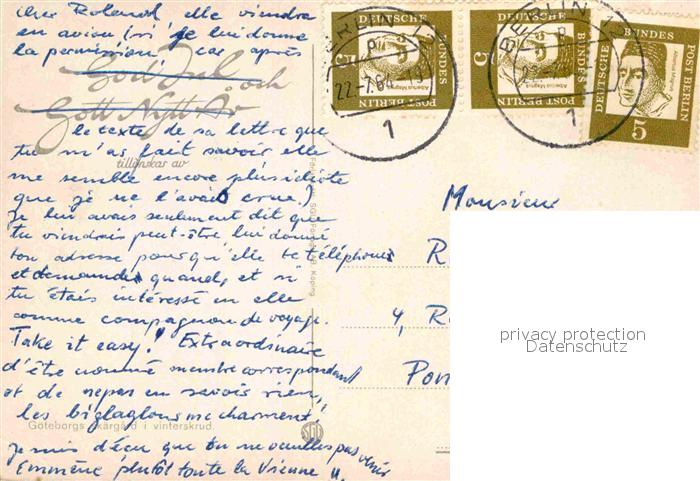 cher Roland, elle viendra
en avion (si je lui donne
la permission, car après
God Jul och
Gott Nytt År
le texte de sa lettre que
tu m'as fait savoir elle
tillönskar av
me semble encore plus idiote
que je ne l'avais crue.)
Je lui avais seulement dit que
tu viendrais peut-être lui donné
ton adresse pour qu'elle te téléphone
et demande quand, et si
tu étais intéressé en elle
comme compagnon de voyage.
Take it easy! Extraordinaire
d'être nommé membre correspondant
et de ne pas en savoir rien,
les biglaglons me charment
Göteborgs skärgård i vinterskrud.
je suis déçu que tu ne veuilles pas venir
Emmène plutôt toute la Vienne
DEUTSCHE BUNDESPOST BERLIN
Albertus Magnus
5
DEUTSCHE BUNDESPOST BERLIN
Albertus Magnus
5
DEUTSCHE BUNDESPOST BERLIN
5
BERLIN
22.-7.64
1
BERLIN 12
22
1
Monsieur
R
4, R
Pon
privacy protection
Datenschutz